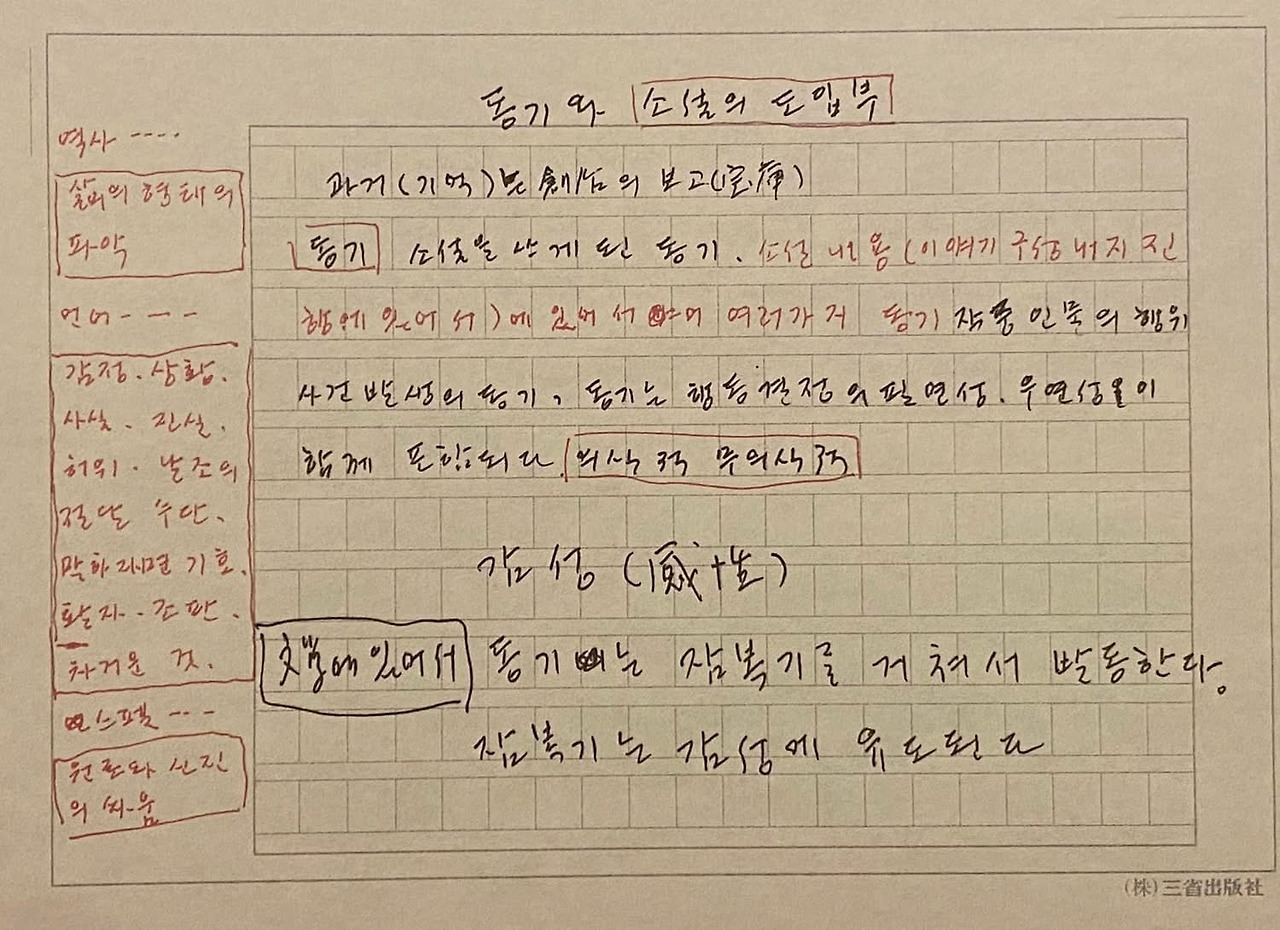 동기와 소설의 도입부
과거(기억)는 創作의 보고(宝庫)
동기 소설을 쓰게 된 동기. 소설 내용(이야기 구성 내지 진
행에 있어서)에 있어서 여러가지 동기 작중인물의 행위
사건 발생의 동기, 동기는 행동결정의 필연성. 우연성이
함께 포함되다. 의식적 무의식적
감성(感性)
文學에 있어서 동기는 잠복기를 거쳐서 발동한다.
잠복기는 감성에 유도된다
역사 ----
삶의 형태의
파악
언어 - - -
감정. 상황.
사실. 진실.
허위. 날조의
전달 수단.
말하자면 기호.
활자. 간판.
차가운 것.
원초와 신진
의 싸움
(株)三省出版社